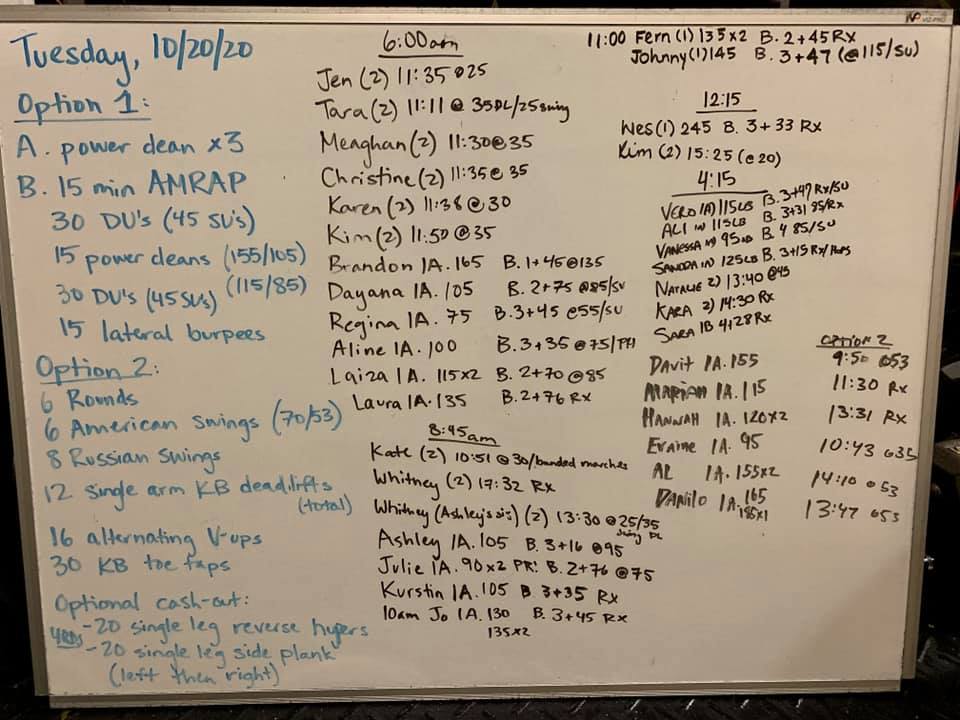 Tuesday, 10/20/20
Option 1:
A. power clean x3
B. 15 min AMRAP
30 DU's (45 SU's)
15 power cleans (155/105)
(115/85)
30 DU's (45 SUs)
15 lateral burpees
Option 2:
6 Rounds
6 American Swings (70/53)
8 Russian Swings
12 single arm KB deadlifts
(total)
16 alternating V-ups
30 KB toe taps
Optional cash-out:
-20 single leg reverse hypers
-20 single leg side plank
(left then right)
6:00am
Jen (2) 11:35 @25
Tara (2) 11:11 @ 35DL/25swing
Meaghan (2) 11:30@35
Christine (2) 11:35@35
Karen (2) 11:38@30
Kim (2) 11:50@35
Brandon 1A. 165 B. 1+45@135
Dayana 1A. 105 B. 2+75 @85/SU
Regina 1A. 75 B. 3+45 @55/SU
Aline 1A. 100 B. 3+35 @75/PH
Laiza 1A. 115x2 B. 2+70 @85
Laura 1A. 135 B. 2+76 Rx
8:45am
Kate (2) 10:51 @30/banded marches
Whitney (2) 17:32 Rx
Whitney (Ashley's sis) (2) 13:30 @25/35
swing DL
Ashley 1A. 105 B. 3+16 @95
Julie 1A. 90x2 PR! B. 2+76 @75
Kurstin 1A. 105 B. 3+35 Rx
10am Jo 1A. 130 B. 3+45 Rx
135x2
11:00 Fern (1) 135x2 B. 2+45 Rx
Johnny (1) 145 B. 3+47 (@115/SU)
12:15
Wes (1) 245 B. 3+33 Rx
Kim (2) 15:25 (@20)
4:15
VERO 1A) 115LB B. 3+47 Rx/SU
ALI 115LB B. 3+31 85/Rx
VANESSA 95LB B. 4 85/SU
SANDRA 125LB B. 3+15 Rx/Hops
NATALIE 2) 13:40 @45
KARA 2) 14:30 Rx
SARA 1B 4+28 Rx
OPTION 2
DAVIT 1A. 155 9:50 @53
MARIAH 1A. 115 11:30 Rx
HANNAH 1A. 120x2 13:31 Rx
Eraine 1A. 95 10:43 @35
AL 1A. 155x2 14:10 @53
DANILO 1A. 165 13:47 @53
185x1